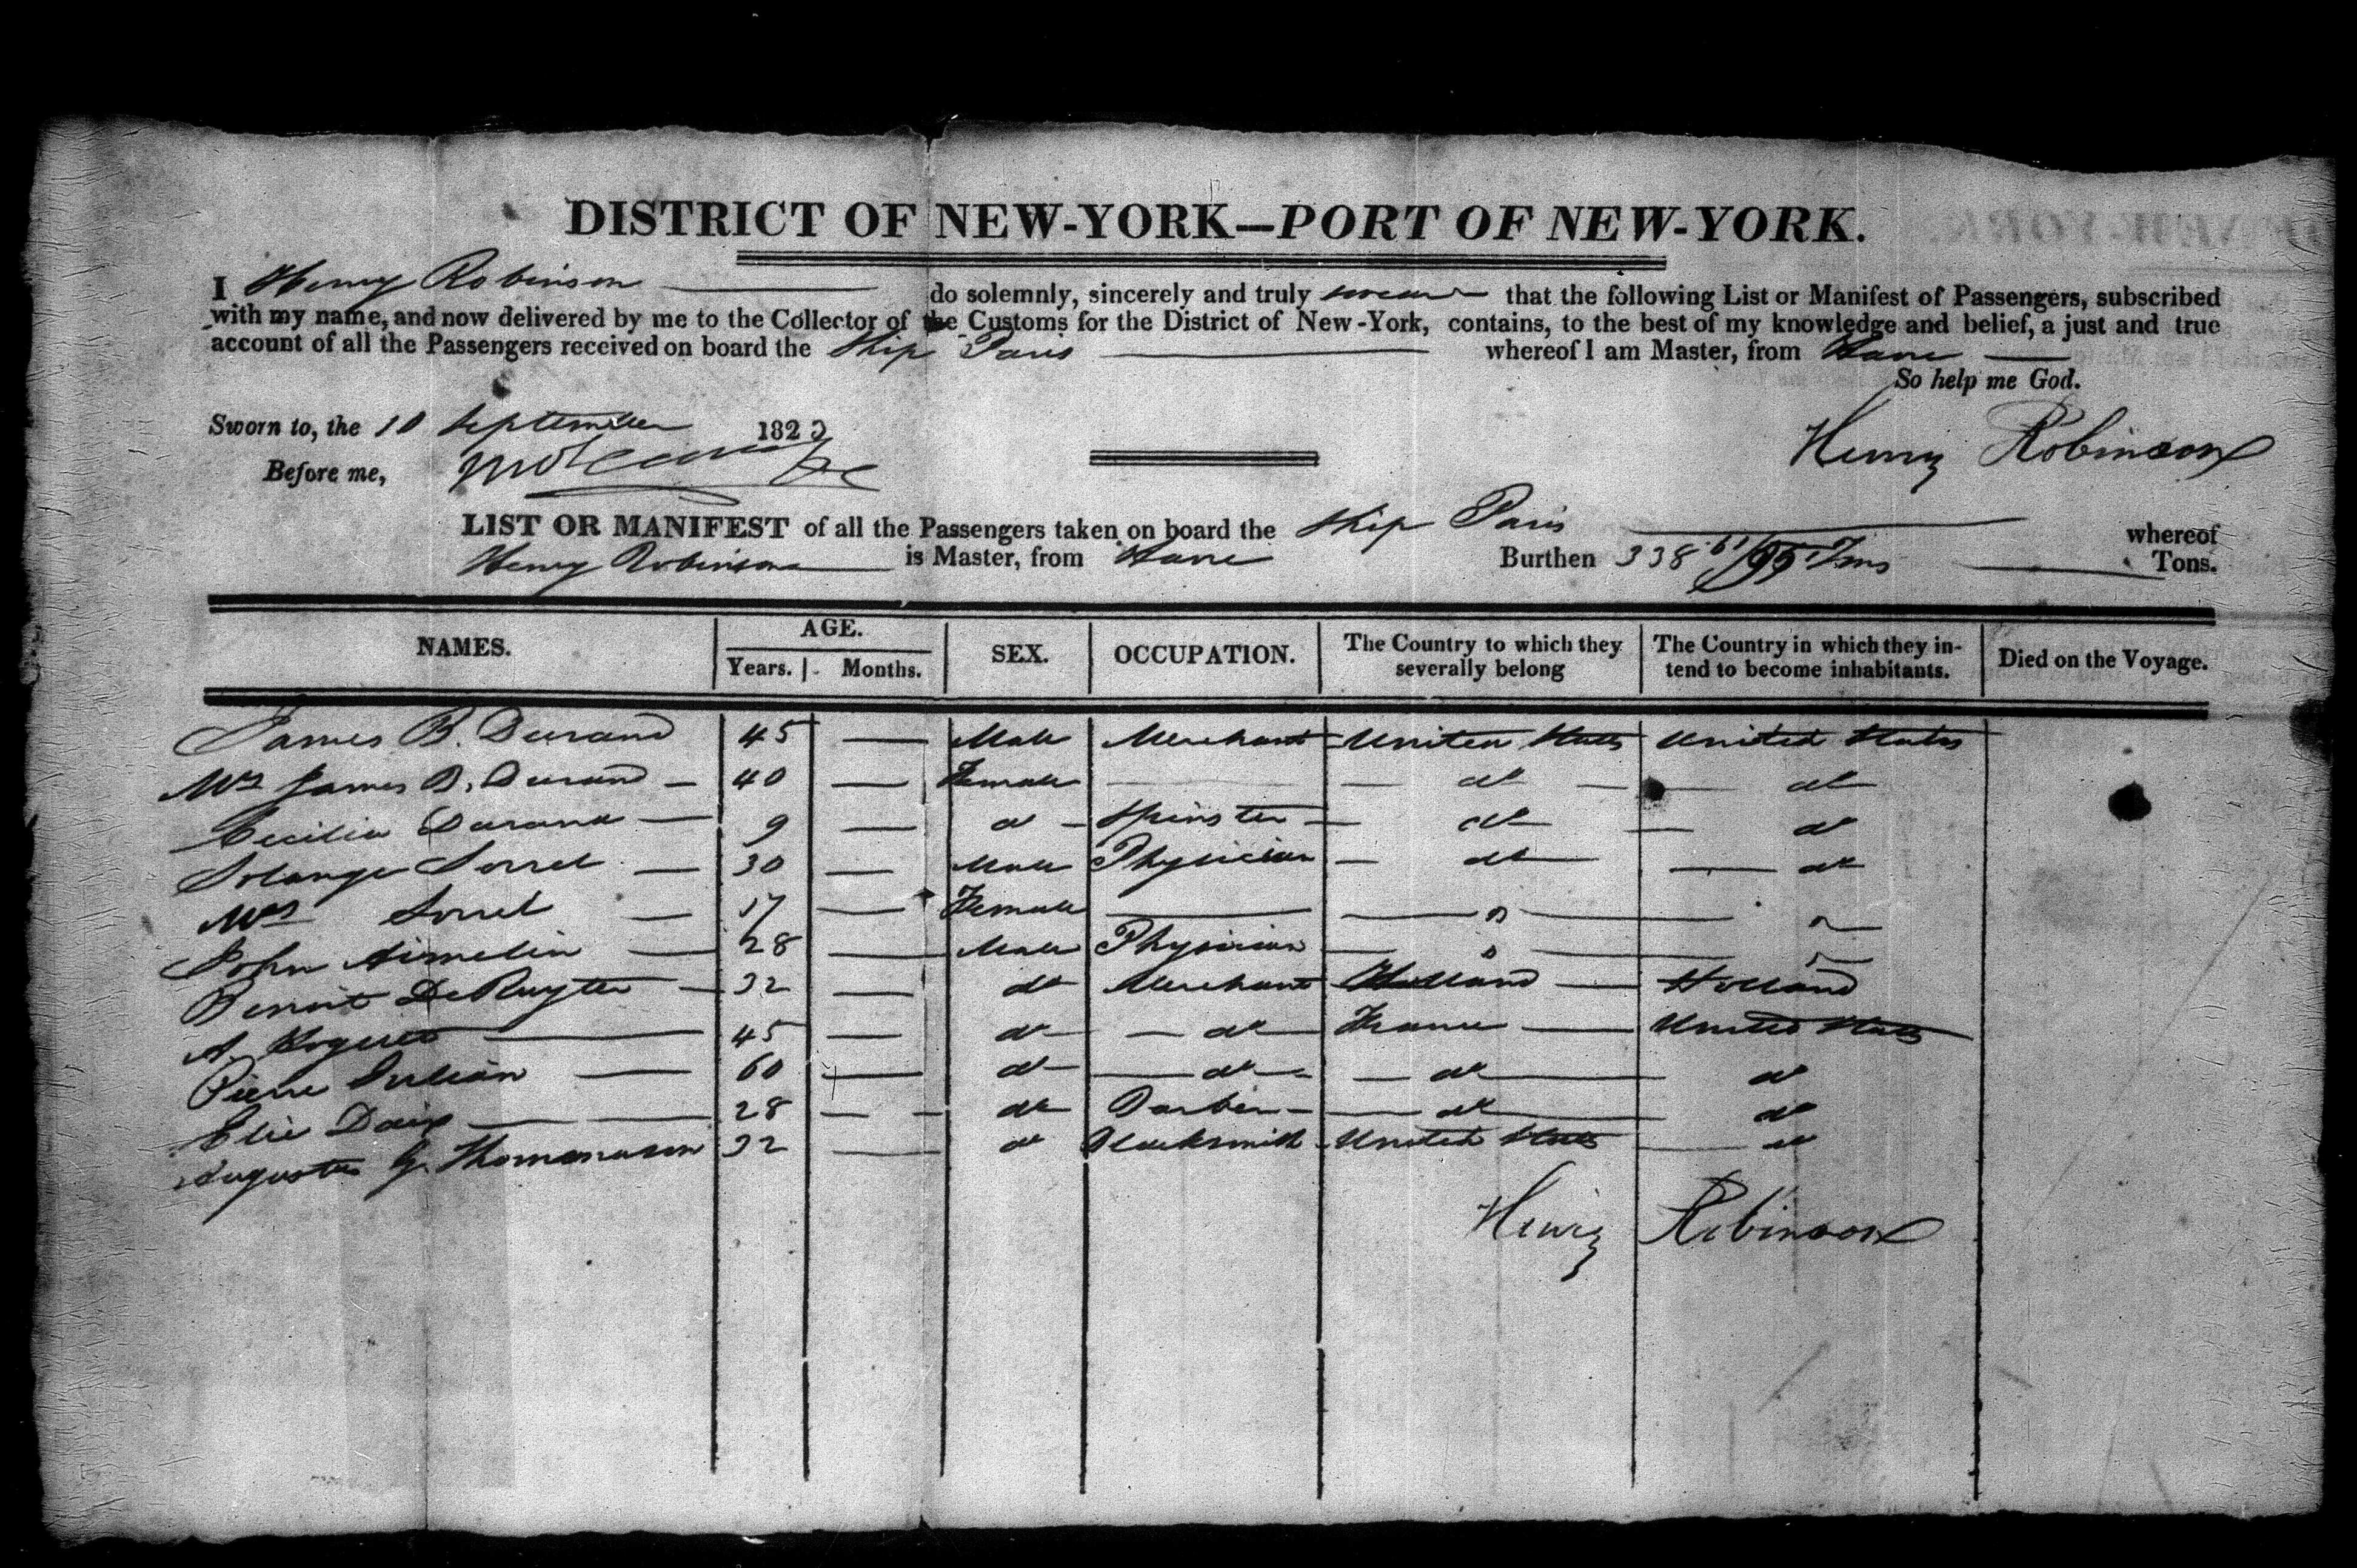 DISTRICT OF NEW-YORK—PORT OF NEW-YORK.
I Henry Robinson do solemnly, sincerely and truly swear that the following List or Manifest of Passengers, subscribed
with my name, and now delivered by me to the Collector of the Customs for the District of New-York, contains, to the best of my knowledge and belief, a just and true
account of all the Passengers received on board the Ship Paris whereof I am Master, from Havre
So help me God.
Sworn to, the 10 September 1823
Henry Robinson
Before me,
LIST OR MANIFEST of all the Passengers taken on board the Ship Paris whereof
Henry Robinson is Master, from Havre Burthen 338 61/95 Tons Tons.
NAMES. AGE. SEX. OCCUPATION. The Country to which they severally belong The Country in which they intend to become inhabitants. Died on the Voyage.
Years. Months.
James B. Durand 45 — Male Merchant United States United States
Mrs James B. Durand — 40 — Female — do — — do
Cecilia Durand — 9 — do — Spinster — do — do
Solange Sorrel — 30 — Male Physician — do — do
Mrs Sorrel — 17 — Female — " — "
John Aimelin — 28 — Male Physician — " — "
Benoit DeRuyter — 32 — do Merchant Holland — Holland
A. — 45 — do — do France — United States
Pierre Julian — 60 — do — do — — do — do
Elie — 28 — do Barber — — do — do
Augustus G. 32 — do Blacksmith United States — do
Henry Robinson